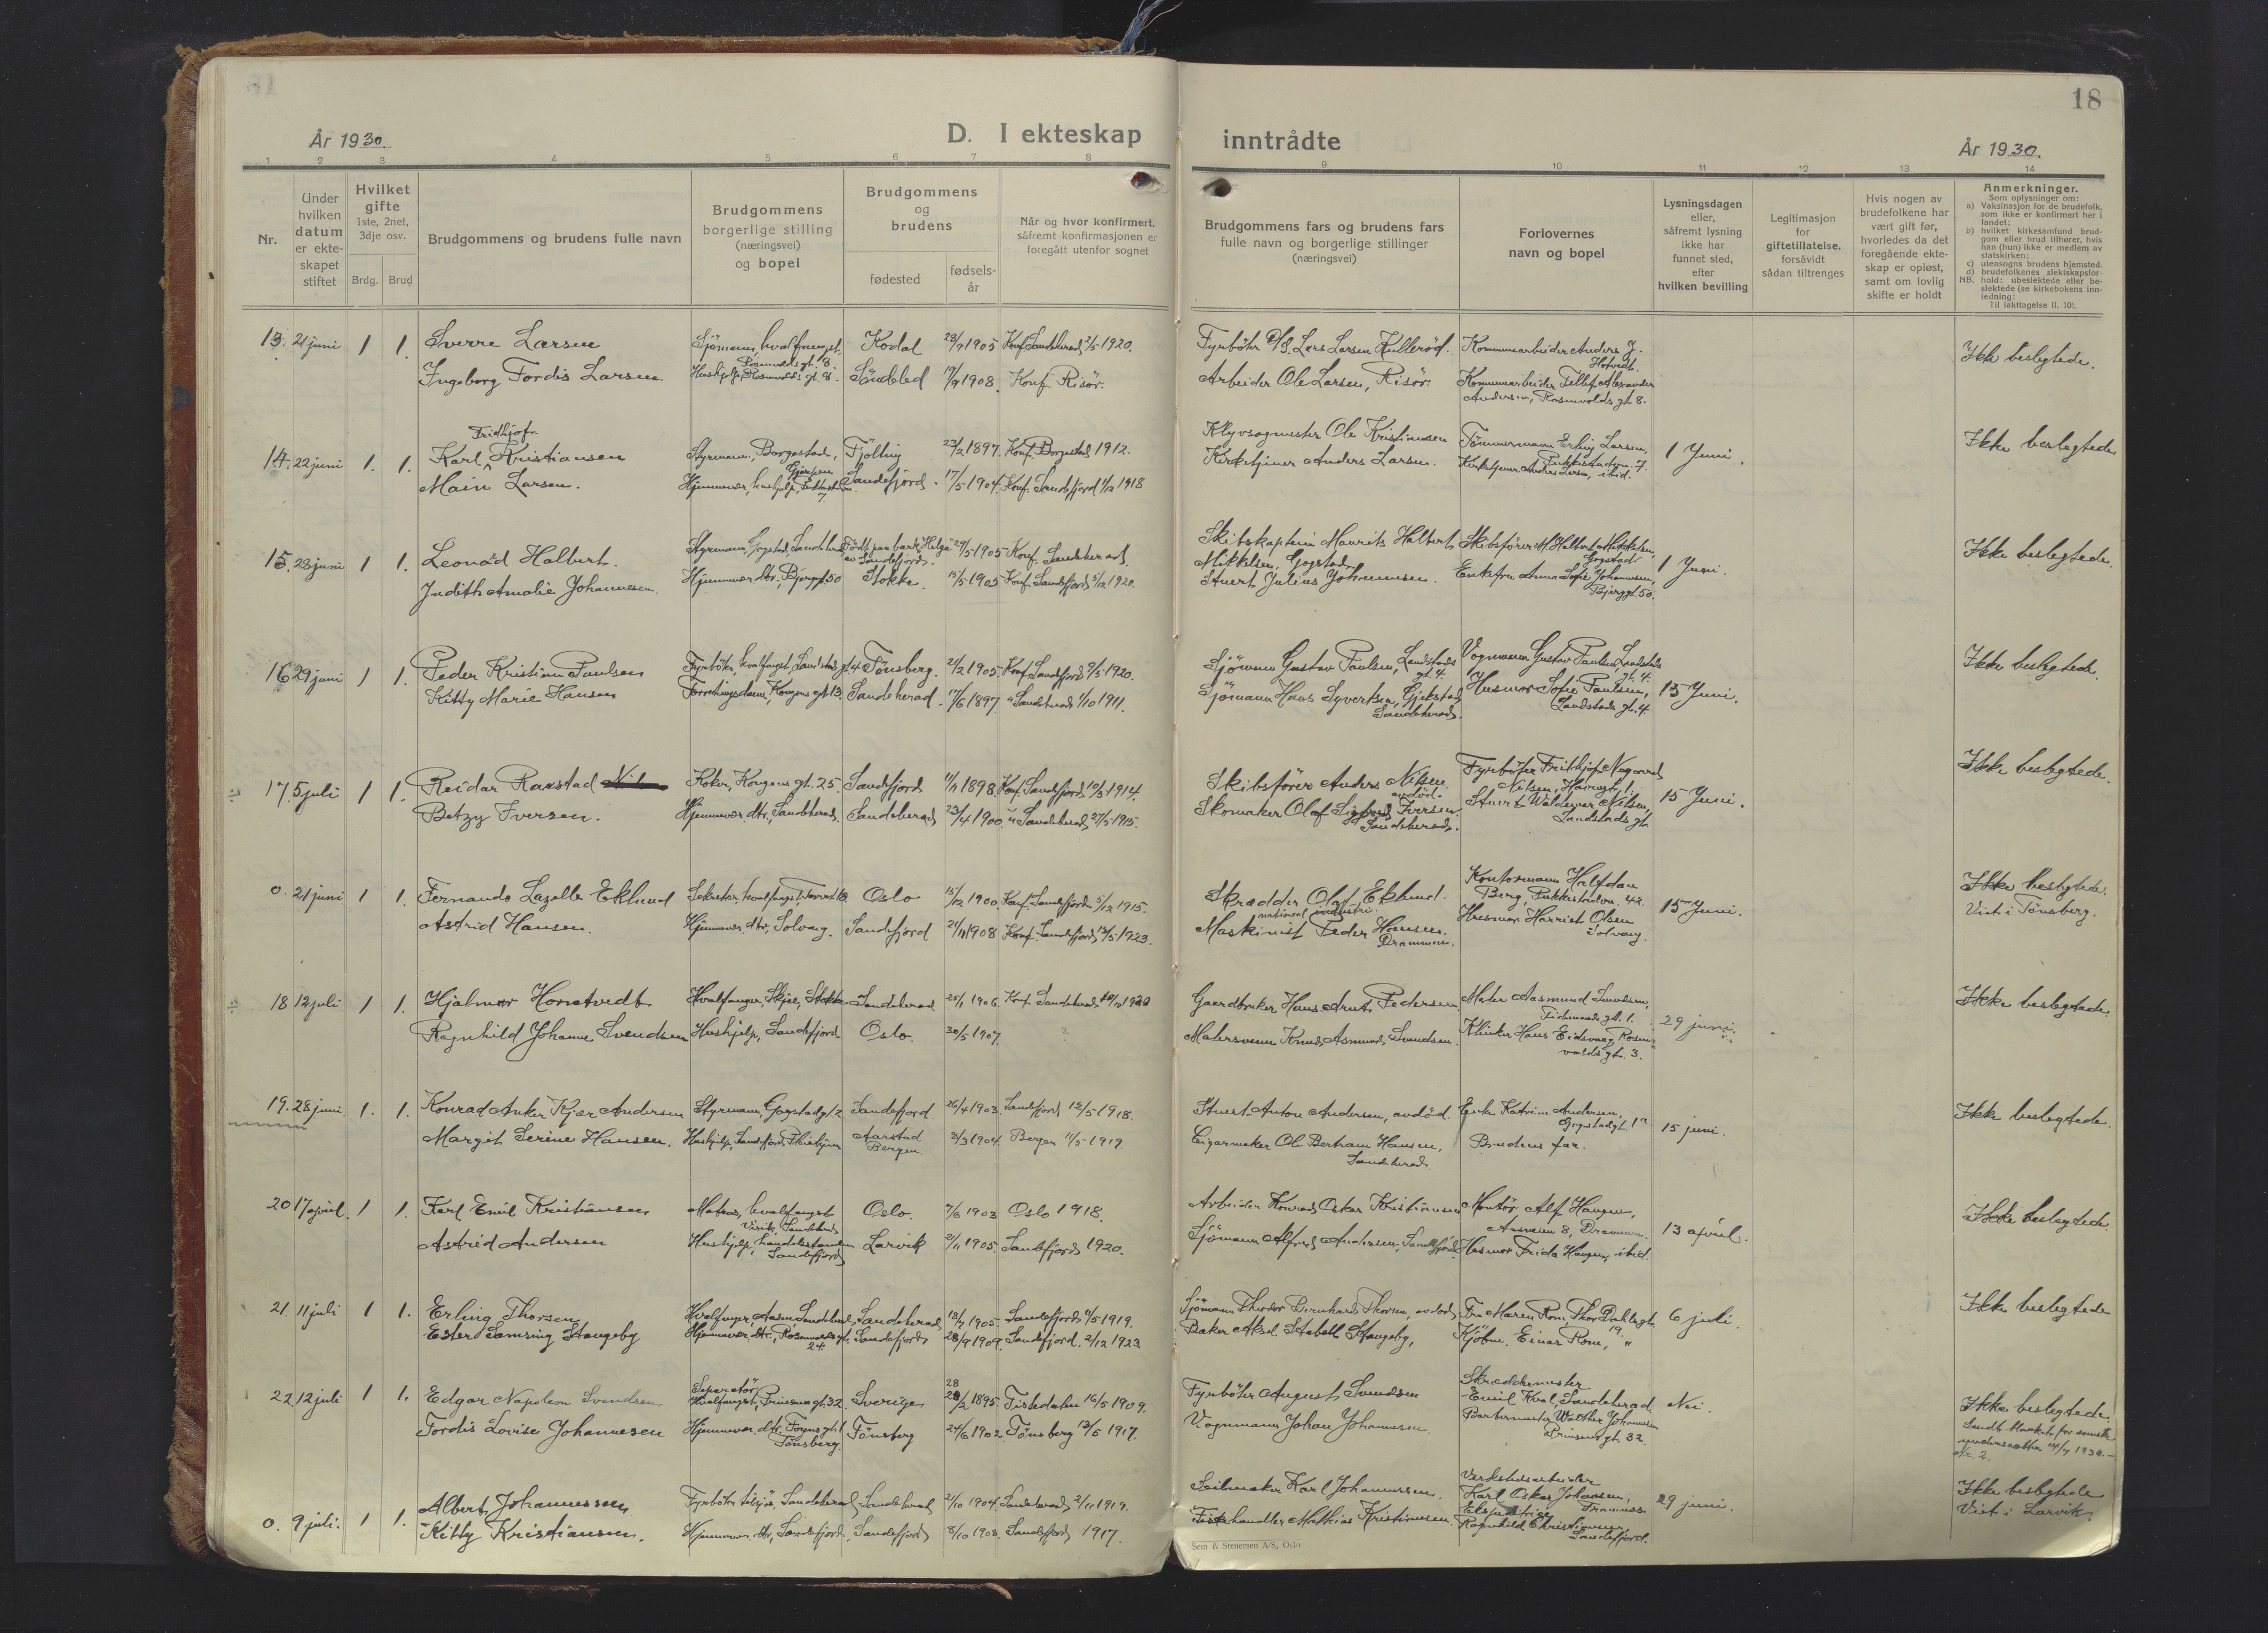 18
År 1930.
D. I ekteskap inntrådte
År 1930.
1 2 3 4 5 6 7 8 9 10 11 12 13 14
Nr.
Under hvilken datum er ekte-skapet stiftet
Hvilket gifte 1ste, 2net, 3dje osv.
Brdg. Brud
Brudgommens og brudens fulle navn
Brudgommens borgerlige stilling (næringsvei) og bopel
Brudgommens og brudens
fødested
fødsels-år
Når og hvor konfirmert, såfremt konfirmasjonen er foregått utenfor sognet
Brudgommens fars og brudens fars fulle navn og borgerlige stillinger (næringsvei)
Forlovernes navn og bopel
Lysningsdagen eller, såfremt lysning ikke har funnet sted, efter hvilken bevilling
Legitimasjon for giftetillatelse, forsåvidt sådan tiltrenges
Hvis nogen av brudefolkene har vært gift før, hvorledes da det foregående ekte-skap er opløst, samt om lovlig skifte er holdt
Anmerkninger.
Som oplysninger om:
a) Vaksinasjon for de brudefolk, som ikke er konfirmert her i landet;
b) hvilket kirkesamfund brud-gom eller brud tilhører, hvis han (hun) ikke er medlem av statskirken;
c) utensogns brudens hjemsted.
d) brudefolkenes slektskapsfor-hold: ubeslektede eller be-slektede (se kirkebokens inn-ledning:
NB. Til iakttagelse II. 10).
13. 21 juni 1 1. Sverre Larsen Sjömann, hvalfanget. Rosenvolds gt. 8. Kodal 1905 Konf. Sandeherad 2/5 1920. Fyrböter Lars Larsen Kullerød. Kommunearbeider Anders J. Hotvedt. Ikke beslegtede.
Ingeborg Tordis Larsen Hushjelp, Rosenvolds gt. 8. Söndeled 17/9 1908. Konf. Risör. Arbeider Ole Larsen, Risör. Kommunearbeider Andersen, Rosenvolds gt. 8.
14. 22 juni 1. 1. Karl Fridthjof Kristiansen Styrmann, Borgestad, Gjerpen Fjölling 23/2 1897. Konf. Borgestad 1912. Ole Kristiansen Tömmermann Erling Larsen, 7. 1 Juni. Ikke beslegtede
Main Larsen. Hjemmevær, hushjelp, 7. Sandefjord. 17/5 1904. Konf. Sandefjord 1/12 1918 Kirketjener Anders Larsen. Kirketjener Anders Larsen, ibid.
15. 28 juni 1 1. Leonard Halbert. Styrmann, Gogstad, Sandeherad Födt paa bark "Helga" av Sandefjord. 1905 Konf. Sandeherad. Skibskaptein Maurits Halbert Mikkelsen, Gogstad. Skibsförer M. Halbert Mikkelsen, Gogstad 1 Juni. Ikke beslegtede.
Judith Amalie Johannesen. Hjemmevær. dtr., Bjerggt. 50 Stokke. 15/5 1905 Konf. Sandefjord 5/12 1920. Stuert Julius Johannesen. Enkefru Anna Sofie Johannesen, Bjerggt. 50.
16 29 juni 1 1. Peder Kristian Paulsen Fyrböter, hvalfangst, Landstads gt. 4 Tönsberg. 21/2 1905. Konf. Sandefjord 9/5 1920. Sjömann Gustav Paulsen, Landstads gt. 4. Vognmann Gustav Paulsen, Landstads gt. 4. 15 Juni. Ikke beslegtede.
Kitty Marie Hansen Forretningsdame, Kongens gt. 13. Sandeherad. 17/6 1897. " Sandeherad 1/10 1911. Sjömann Hans Syvertsen, Gjekstad, Sandeherad. Husmor Sofie Paulsen, Landstads gt. 4.
17. 5 juli 1 1. Reidar Raastad Kokk, Kongens gt. 25. Sandefjord 11/11 1898. Konf. Sandefjord 1914. Skibsförer Anders Nilsen avdöd. Fyrböter Frithjof Nilsen, 15 Juni. Ikke beslegtede.
Betzy Iversen. Hjemmevær. dtr., Sandeherad. Sandeherad 23/4 1900. " Sandeherad 27/5 1915. Skomaker Olaf Iversen Sandeherad. Stuert Waldemar Nilsen, Landstads gt.
0. 21 juni 1 1. Fernando Lazelle Eklund Sekretær, hvalfangst, Oslo 15/12 1900. Konf. Sandefjord 5/12 1915. Skrædder Olof Eklund. Kontormann Halfdan Berg, Pukkestadvn. 42. 15 Juni. Ikke beslegtede. Viet i Tönsberg.
Astrid Hansen. Hjemmevær. dtr., Solvang. Sandefjord 1908 Konf. Sandefjord 13/5 1923. Maskinist Peder Hansen. Drammen. Husmor Harriet Olsen Solvang.
18 12 juli 1 1. Hjalmar Horntvedt Hvalfanger, Skjee, Stokke Sandeherad 25/1 1906. Konf. Sandeherad 1920 Gaardbruker Hans Arnt Pedersen Maler Aasmund Svendsen, 29 juni. Ikke beslegtede.
Ragnhild Johanne Svendsen Hushjelp, Sandefjord Oslo. 30/5 1907. ? Malersvenn Knud Asmund Svendsen. Hans Eidsvaag, Rosenvolds gt. 3.
19. 28 juni. 1. 1. Konrad Anker Kjær Andersen Styrmann, Gogstadgt. 2 Sandefjord 26/4 1903. Sandefjord 12/5 1918. Stuert Anton Andersen, avdöd. Enke Katrine Andersen, Gogstadgt. 1 15 juni. Ikke beslegtede.
Margit Serine Hansen. Hushjelp, Sandefjord, Aarstad Bergen 3/3 1904. Bergen 11/5 1919. Cigarmaker Ole Bertram Hansen, Sandeherad. Brudens far.
20 17 april. 1 1. Karl Emil Kristiansen Matros, hvalfangst Virik, Sandeherad Oslo. 7/6 1903 Oslo 1918. Arbeider Konrad Oskar Kristiansen Montör Alf Haugen, Aasveien 8, Drammen. 13 april. Ikke beslegtede.
Astrid Andersen Hushjelp, Sandefjord Larvik 2/11 1905. Sandefjord 1920. Sjömann Alfred Andersen, Sandefjord. Husmor Frida Haugen, ibid.
21. 11 juli 1 1. Erling Thorsen Hvalfanger, Aasen Sandeherad Sandeherad 1905. Sandefjord 11/5 1919. Sjömann Theodor Bernhard Thorsen, avdöd, Fru Maren Rom, Thor Dahlsgt. 19. 6 juli. Ikke beslegtede
Ester Samsing Stangeby Hjemmevær. dtr., Rosenvolds gt. 24 Sandefjord 28/9 1909. Sandefjord. 2/12 1923 Baker Aksel Stabell Stangeby, Kjöbm. Einar Rom, "
22 12 juli 1 1. Edgar Napoleon Svendsen Separatör Hvalfangst, Prinsens gt. 32 Sverige 28/2 1895. Tistedalen 16/5 1909. Fyrböter August Svendsen Skræddermester Emil Kval, Sandeherad Nei. Ikke beslegtede.
Tordis Lovise Johannesen Hjemmevær. dtr. Foyns gt. 1 Tönsberg Tönsberg 24/6 1902. Tönsberg 13/5 1917. Vognmann Johan Johannesen. Barbermester Walther Johannesen Prinsensgt. 32. 14/7 1930. Nr. 2.
0. 9 juli. 1 1. Albert Johannessen Fyrböter tilsjös, Sandeherad Sandeherad 2/10 1904. Sandeherad 2/11 1919. Seilmaker Karl Johannessen. Verkstedsarbeider Karl Oskar Johansen, Framnes. 29 juni. Ikke beslegtede Viet i Larvik.
Kitty Kristiansen. Hjemmevær. dtr., Sandefjord. Sandefjord 8/10 1903. Sandefjord 1917. Fiskehandler Mathias Kristiansen. Ekspeditrise Ragnhild Christiansen, Sandefjord.
Sem & Stenersen A/S, Oslo